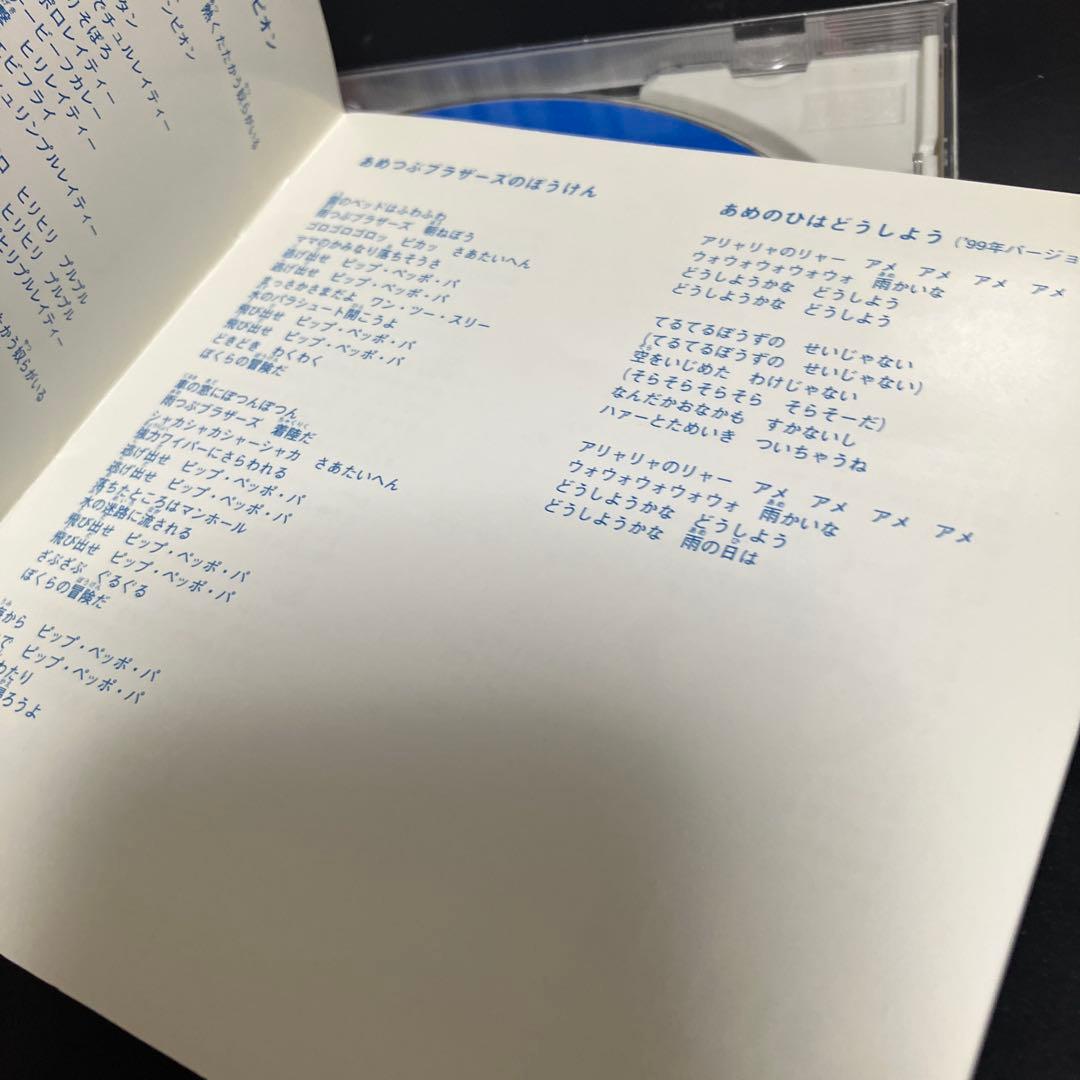 ピオン
熱くたたかう奴らがいる
タン
りそぼろ
でチュルレイティー
ポロレイティー
ービーフカレー
ヒリレイティー
エビフライ
チュリンプルレイティー
ヒリヒリ プルプル
ヒリヒリ プルプル
ヒリプルレイティー
たかう奴らがいる
あめつぶブラザーズのぼうけん
雲のベッドはふわふわ
雨つぶブラザーズ 朝ねぼう
ゴロゴロゴロッ ピカッ さあたいへん
ママのかみなり落ちそうさ
逃げ出せ ピップ・ペッポ・パ
逃げ出せ ピップ・ペッポ・パ
まっさかさまだよ ワン・ツー・スリー
水のパラシュート開こうよ
飛び出せ ピップ・ペッポ・パ
飛び出せ ピップ・ペッポ・パ
どきどき わくわく
ぼくらの冒険だ
車の窓にぽつんぽつん
雨つぶブラザーズ 着陸だ
シャカシャカシャーシャカ さあたいへん
強力ワイパーにさらわれる
逃げ出せ ピップ・ペッポ・パ
逃げ出せ ピップ・ペッポ・パ
落ちたところはマンホール
水の迷路に流される
飛び出せ ピップ・ペッポ・パ
飛び出せ ピップ・ペッポ・パ
ざぶざぶ ぐるぐる
ぼくらの冒険だ
海から ピップ・ペッポ・パ
で ピップ・ペッポ・パ
わたり
帰ろうよ
あめのひはどうしよう ('99年バージョ
アリャリャのリャー アメ アメ アメ アメ
ウォウォウォウォウォ 雨かいな
どうしようかな どうしよう
どうしようかな どうしよう
てるてるぼうずの せいじゃない
(てるてるぼうずの せいじゃない)
空をいじめた わけじゃない
(そらそらそらそら そらそーだ)
なんだかおなかも すかないし
ハァーとためいき ついちゃうね
アリャリャのリャー アメ アメ アメ アメ
ウォウォウォウォウォ 雨かいな
どうしようかな どうしよう
どうしようかな 雨の日は